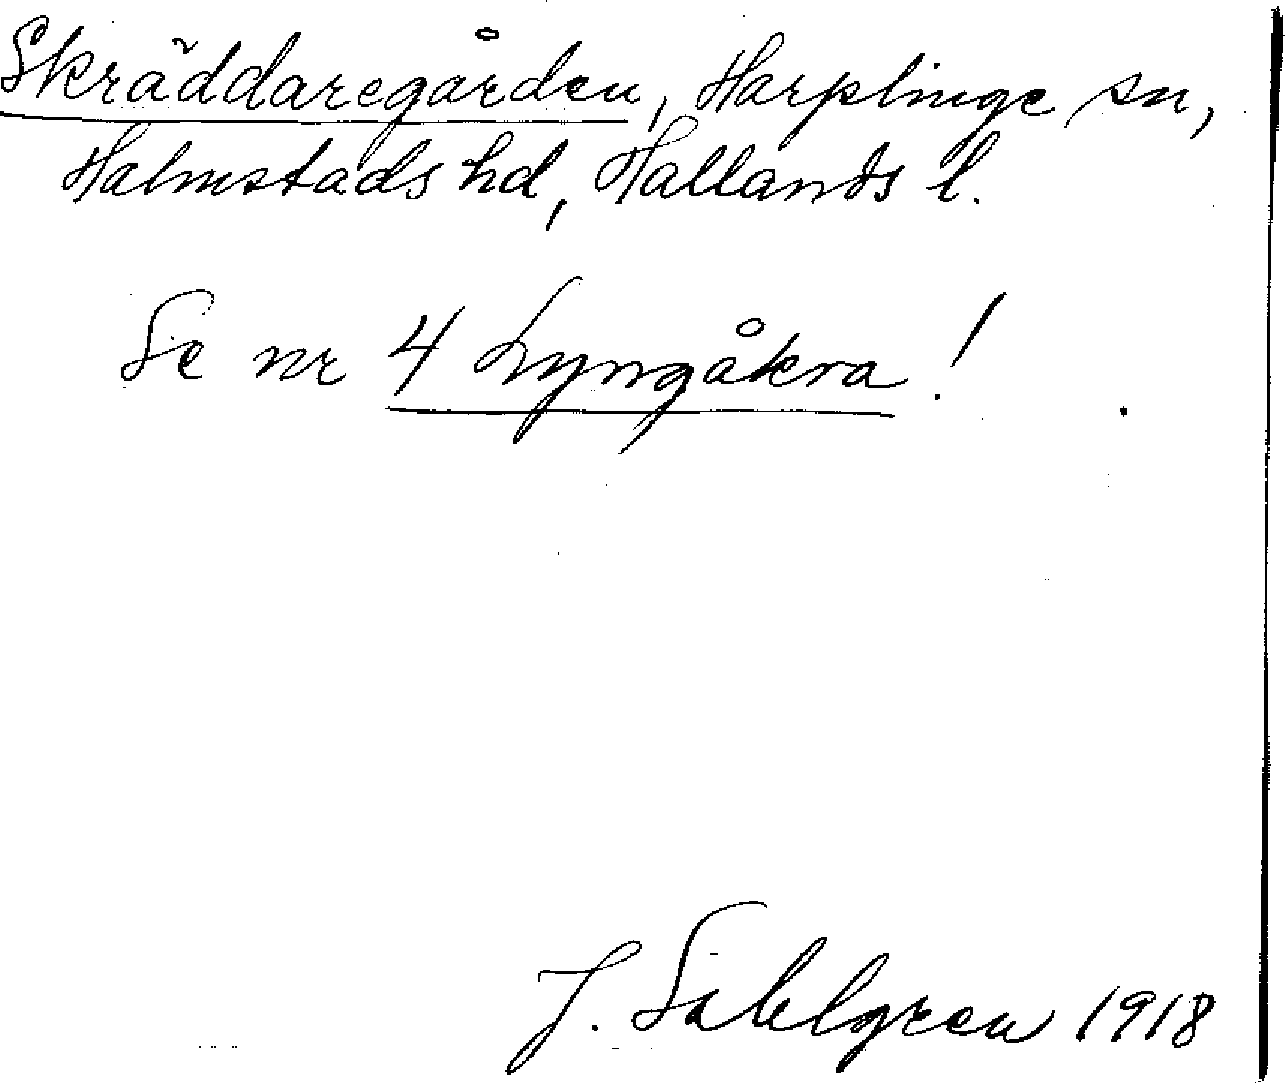 Skräddaregården, Harplinge sn,
Halmstads hd, Hallands l.
Se nr 4 Lyngåkra!
J. Sahlgren 1918